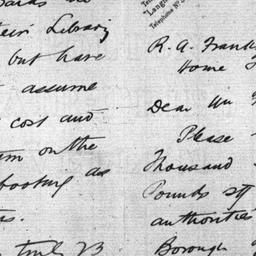 their Library
but have
assume
cost and
on the
booking as
truly
Telephone No
R. A. Frank
Home
Dear Mr
Please
Thousand
Pounds stg
authorities
Borough